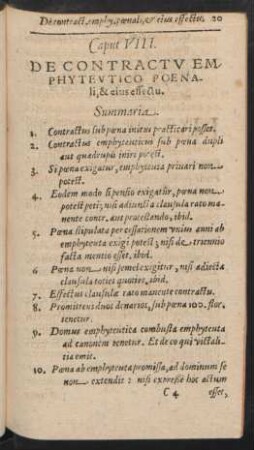 De contract. emphy. pœnali, & eius effectu. 20
Caput VIII.
DE CONTRACTV EM-
PHYTEVTICO POENA-
li, & eius effectu.
Summaria.
1. Contractus sub pœna initus practicari posset.
2. Contractus emphyteuticus sub pœna dupli
aut quadrupli iniri potest.
3. Si pœna exigatur, emphyteuta priuari non
potest.
4. Eodem modo si pensio exigatur, pœna non
potest peti; nisi adiuncta clausula rato ma-
nente contr. aut protestando, ibid.
5. Pœna stipulata per cessationem vnius anni ab
emphyteuta exigi potest; nisi de triennio
facta mentio esset, ibid.
6. Pœna non nisi semel exigitur, nisi adiecta
clausula toties quoties, ibid.
7. Effectus clausulæ rato manente contractu.
8. Promittens duos denarios, sub pœna 100. flor.
tenetur.
9. Domus emphyteutica combusta emphyteuta
ad canonem tenetur. Et de eo qui victali-
tia emit.
10. Pœna ab emphyteuta promissa, ad dominum se
non extendit: nisi expresse hoc actum
C 4 esset,